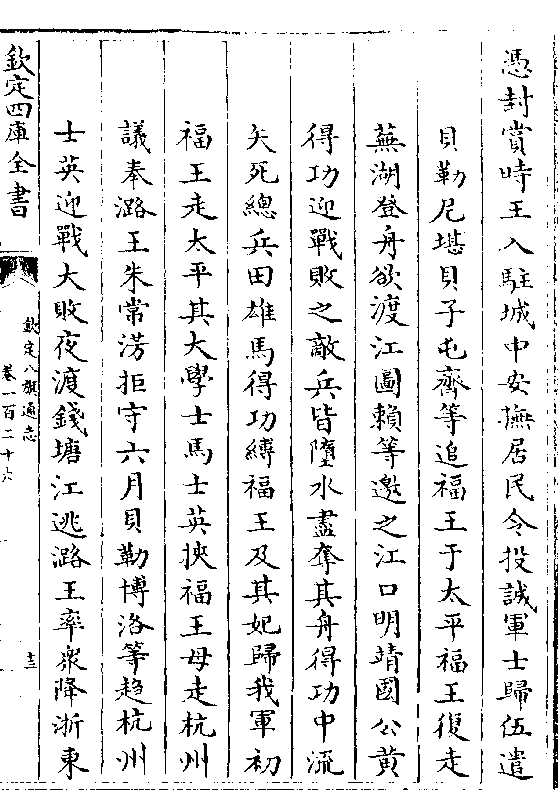 憑封賞時王入駐城中安撫居民令投誠軍士歸伍遣
貝勒尼堪貝子屯齊等追福王于太平福王復走
蕪湖登舟欲渡江圖賴等邀之江口明靖國公黃
得功迎戰敗之敵兵皆墮水盡奪其舟得功中流
矢死總兵田雄馬得功縛福王及其妃歸我軍初
福王走太平其大學士馬士英挾福王母走杭州
議奉潞王朱常淓拒守六月貝勒博洛等趨杭州
士英迎戰大敗夜渡錢塘江逃潞王率衆降浙東
欽定四庫全書
欽定八旗通志
卷一百二十六
十三